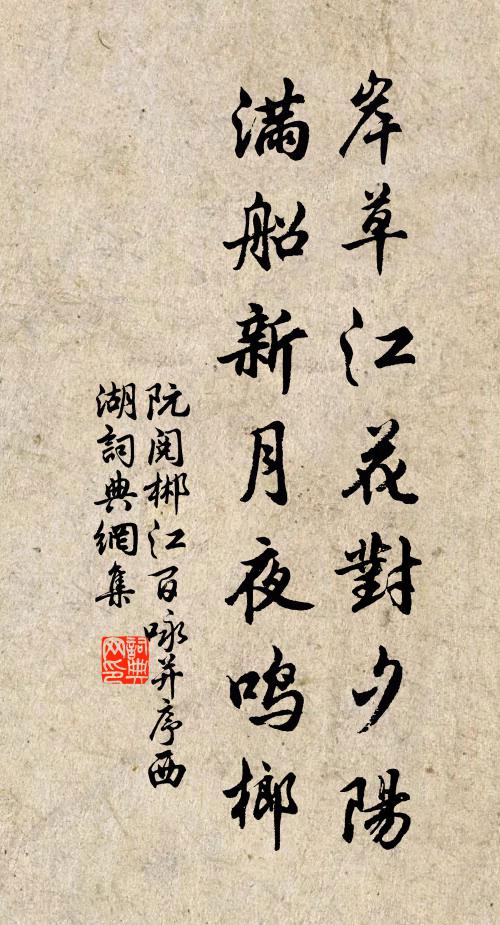 岸草江花對夕陽
滿船新月夜鸣榔
阮閱郴江百咏并序西
湖詞典網集
詞典
网印